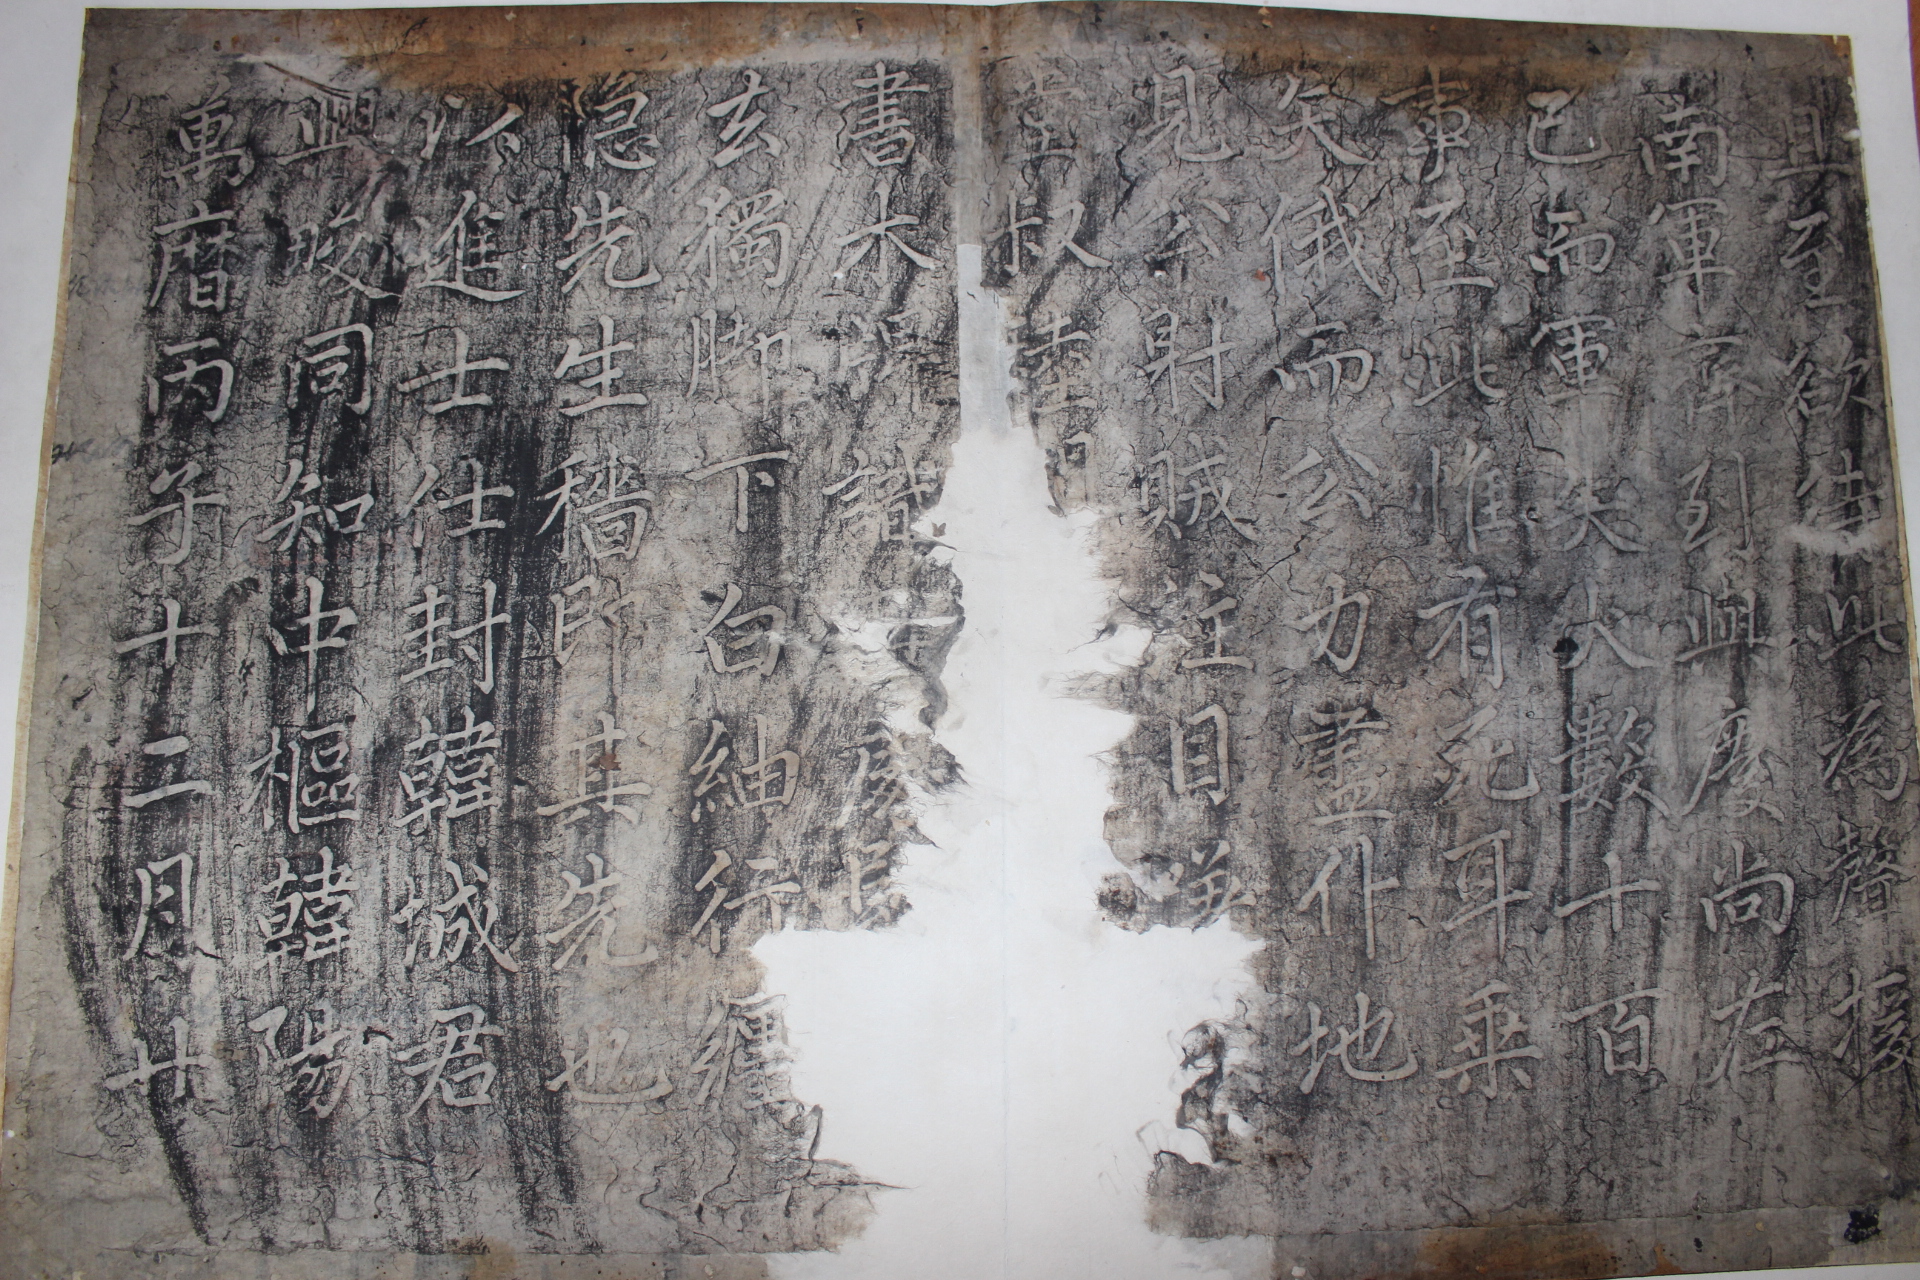 且至欲使此為聲援
南軍齊到與慶尚左
已而軍失火數十百
事至此惟有死耳乘
矢俄而公力盡仆地
見公射賊注目
堂叔
書木牌識
玄獨脚下白紬行纏
急先生穡即其先也
以進士仕封韓城君
興畯同知中樞韓陽
萬曆丙子十二月廿